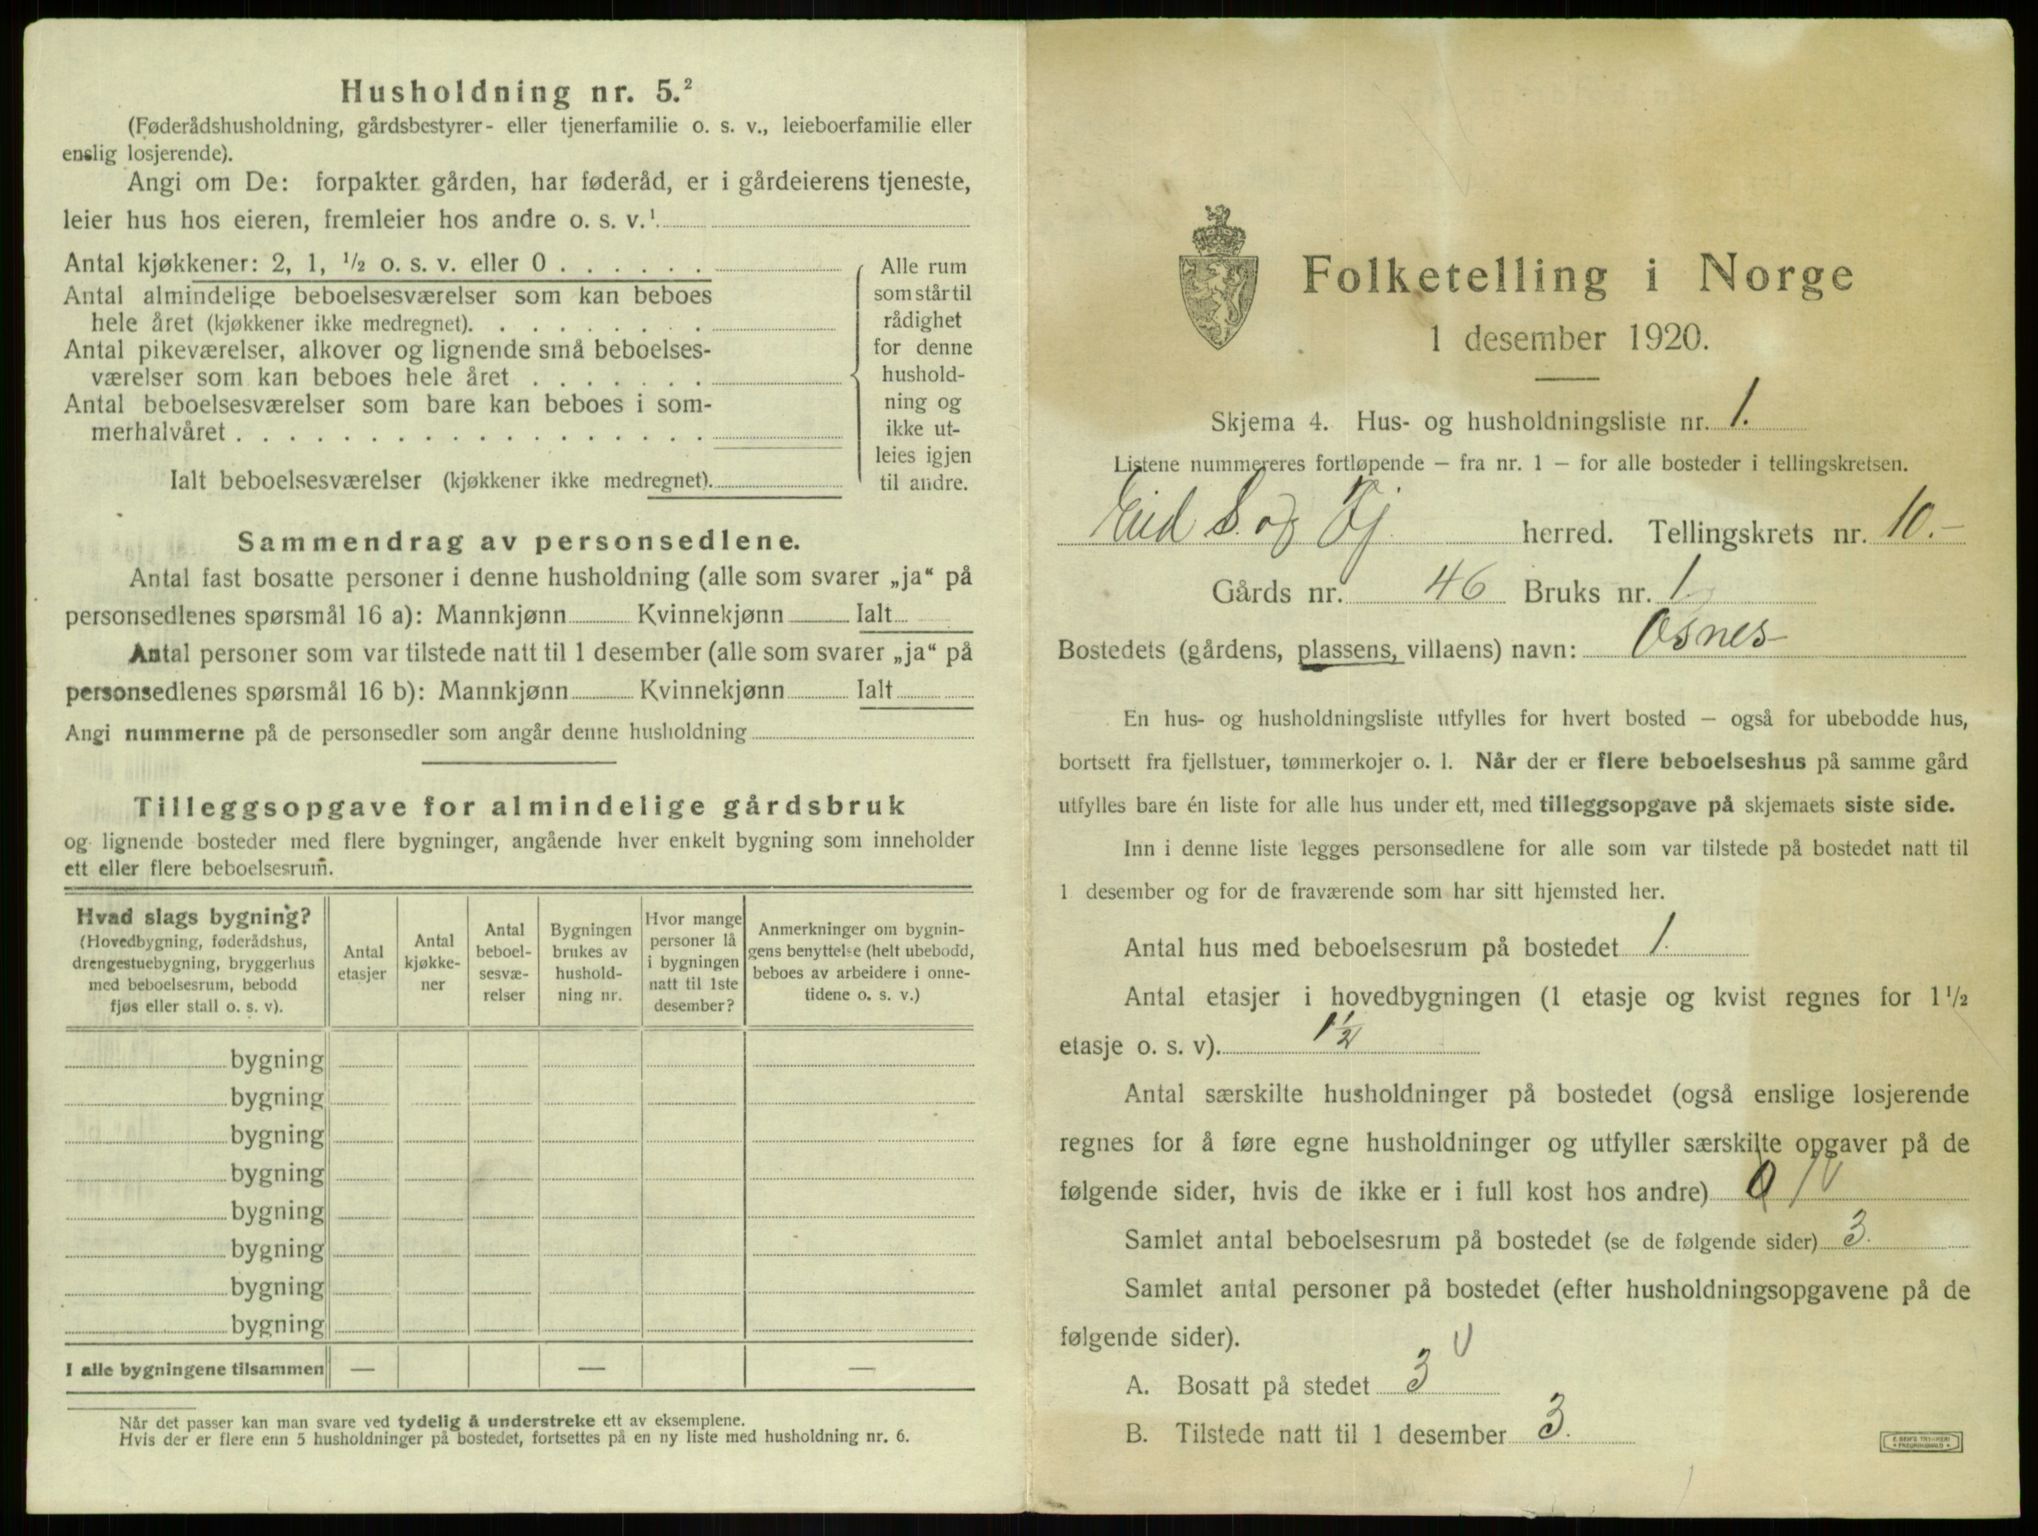 Husholdning nr. 5.²
(Føderådshusholdning, gårdsbestyrer- eller tjenerfamilie o. s. v., leieboerfamilie eller
enslig losjerende).
Angi om De: forpakter gården, har føderåd, er i gårdeierens tjeneste,
leier hus hos eieren, fremleier hos andre o. s. v.¹
Antal kjøkkener: 2, 1, ½ o. s. v. eller 0 . . . . . .
Antal almindelige beboelsesværelser som kan beboes
hele året (kjøkkener ikke medregnet). . . . . . . .
Antal pikeværelser, alkover og lignende små beboelses-
værelser som kan beboes hele året . . . . . . .
Antal beboelsesværelser som bare kan beboes i som-
merhalvåret . . . . . . . . . . . . . . . . . .
Ialt beboelsesværelser (kjøkkener ikke medregnet).
Alle rum
som står til
rådighet
for denne
hushold-
ning og
ikke ut-
leies igjen
til andre.
Sammendrag av personsedlene.
Antal fast bosatte personer i denne husholdning (alle som svarer „ja“ på
personsedlenes spørsmål 16 a): Mannkjønn Kvinnekjønn Ialt
Antal personer som var tilstede natt til 1 desember (alle som svarer „ja“ på
personsedlenes spørsmål 16 b): Mannkjønn Kvinnekjønn Ialt
Angi nummerne på de personsedler som angår denne husholdning
Tilleggsopgave for almindelige gårdsbruk
og lignende bosteder med flere bygninger, angående hver enkelt bygning som inneholder
ett eller flere beboelsesrum.
Hvad slags bygning?
(Hovedbygning, føderådshus,
drengestuebygning, bryggerhus
med beboelsesrum, bebodd
fjøs eller stall o. s. v).
Antal
etasjer
Antal
kjøkke-
ner
Antal
beboel-
sesvæ-
relser
Bygningen
brukes av
hushold-
ning nr.
Hvor mange
personer lå
i bygningen
natt til 1ste
desember?
Anmerkninger om bygnin-
gens benyttelse (helt ubebodd,
beboes av arbeidere i onne-
tidene o. s. v.)
bygning
bygning
bygning
bygning
bygning
bygning
bygning
bygning
I alle bygningene tilsammen — — —
Når det passer kan man svare ved tydelig å understreke ett av eksemplene.
Hvis der er flere enn 5 husholdninger på bostedet, fortsettes på en ny liste med husholdning nr. 6.
Folketelling i Norge
1 desember 1920.
Skjema 4. Hus- og husholdningsliste nr. 1.
Listene nummereres fortløpende – fra nr. 1 – for alle bosteder i tellingskretsen.
Eid S. og Fj. herred. Tellingskrets nr. 10.-
Gårds nr. 46 Bruks nr. 1
Bostedets (gårdens, plassens, villaens) navn: Osnes
En hus- og husholdningsliste utfylles for hvert bosted – også for ubebodde hus,
bortsett fra fjellstuer, tømmerkojer o. l. Når der er flere beboelseshus på samme gård
utfylles bare én liste for alle hus under ett, med tilleggsopgave på skjemaets siste side.
Inn i denne liste legges personsedlene for alle som var tilstede på bostedet natt til
1 desember og for de fraværende som har sitt hjemsted her.
Antal hus med beboelsesrum på bostedet 1.
Antal etasjer i hovedbygningen (1 etasje og kvist regnes for 1½
etasje o. s. v). 1½
Antal særskilte husholdninger på bostedet (også enslige losjerende
regnes for å føre egne husholdninger og utfyller særskilte opgaver på de
følgende sider, hvis de ikke er i full kost hos andre)
Samlet antal beboelsesrum på bostedet (se de følgende sider) 3.
Samlet antal personer på bostedet (efter husholdningsopgavene på de
følgende sider).
A. Bosatt på stedet 3
B. Tilstede natt til 1 desember 3.